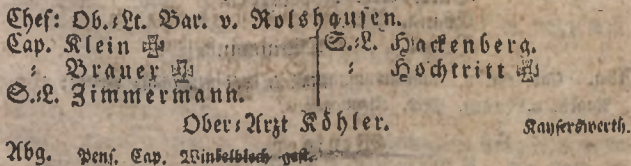 Chef: Ob.:Lt. Bar. v. Rolshausen.
Cap. Klein ✠
: Brauer ✠
S.:L. Zimmermann.
S.:L. Hackenberg.
: Hochtritt ✠
Ober:Arzt Köhler.
Kayserswerth.
Abg. pens. Cap. Winkelblech gest.